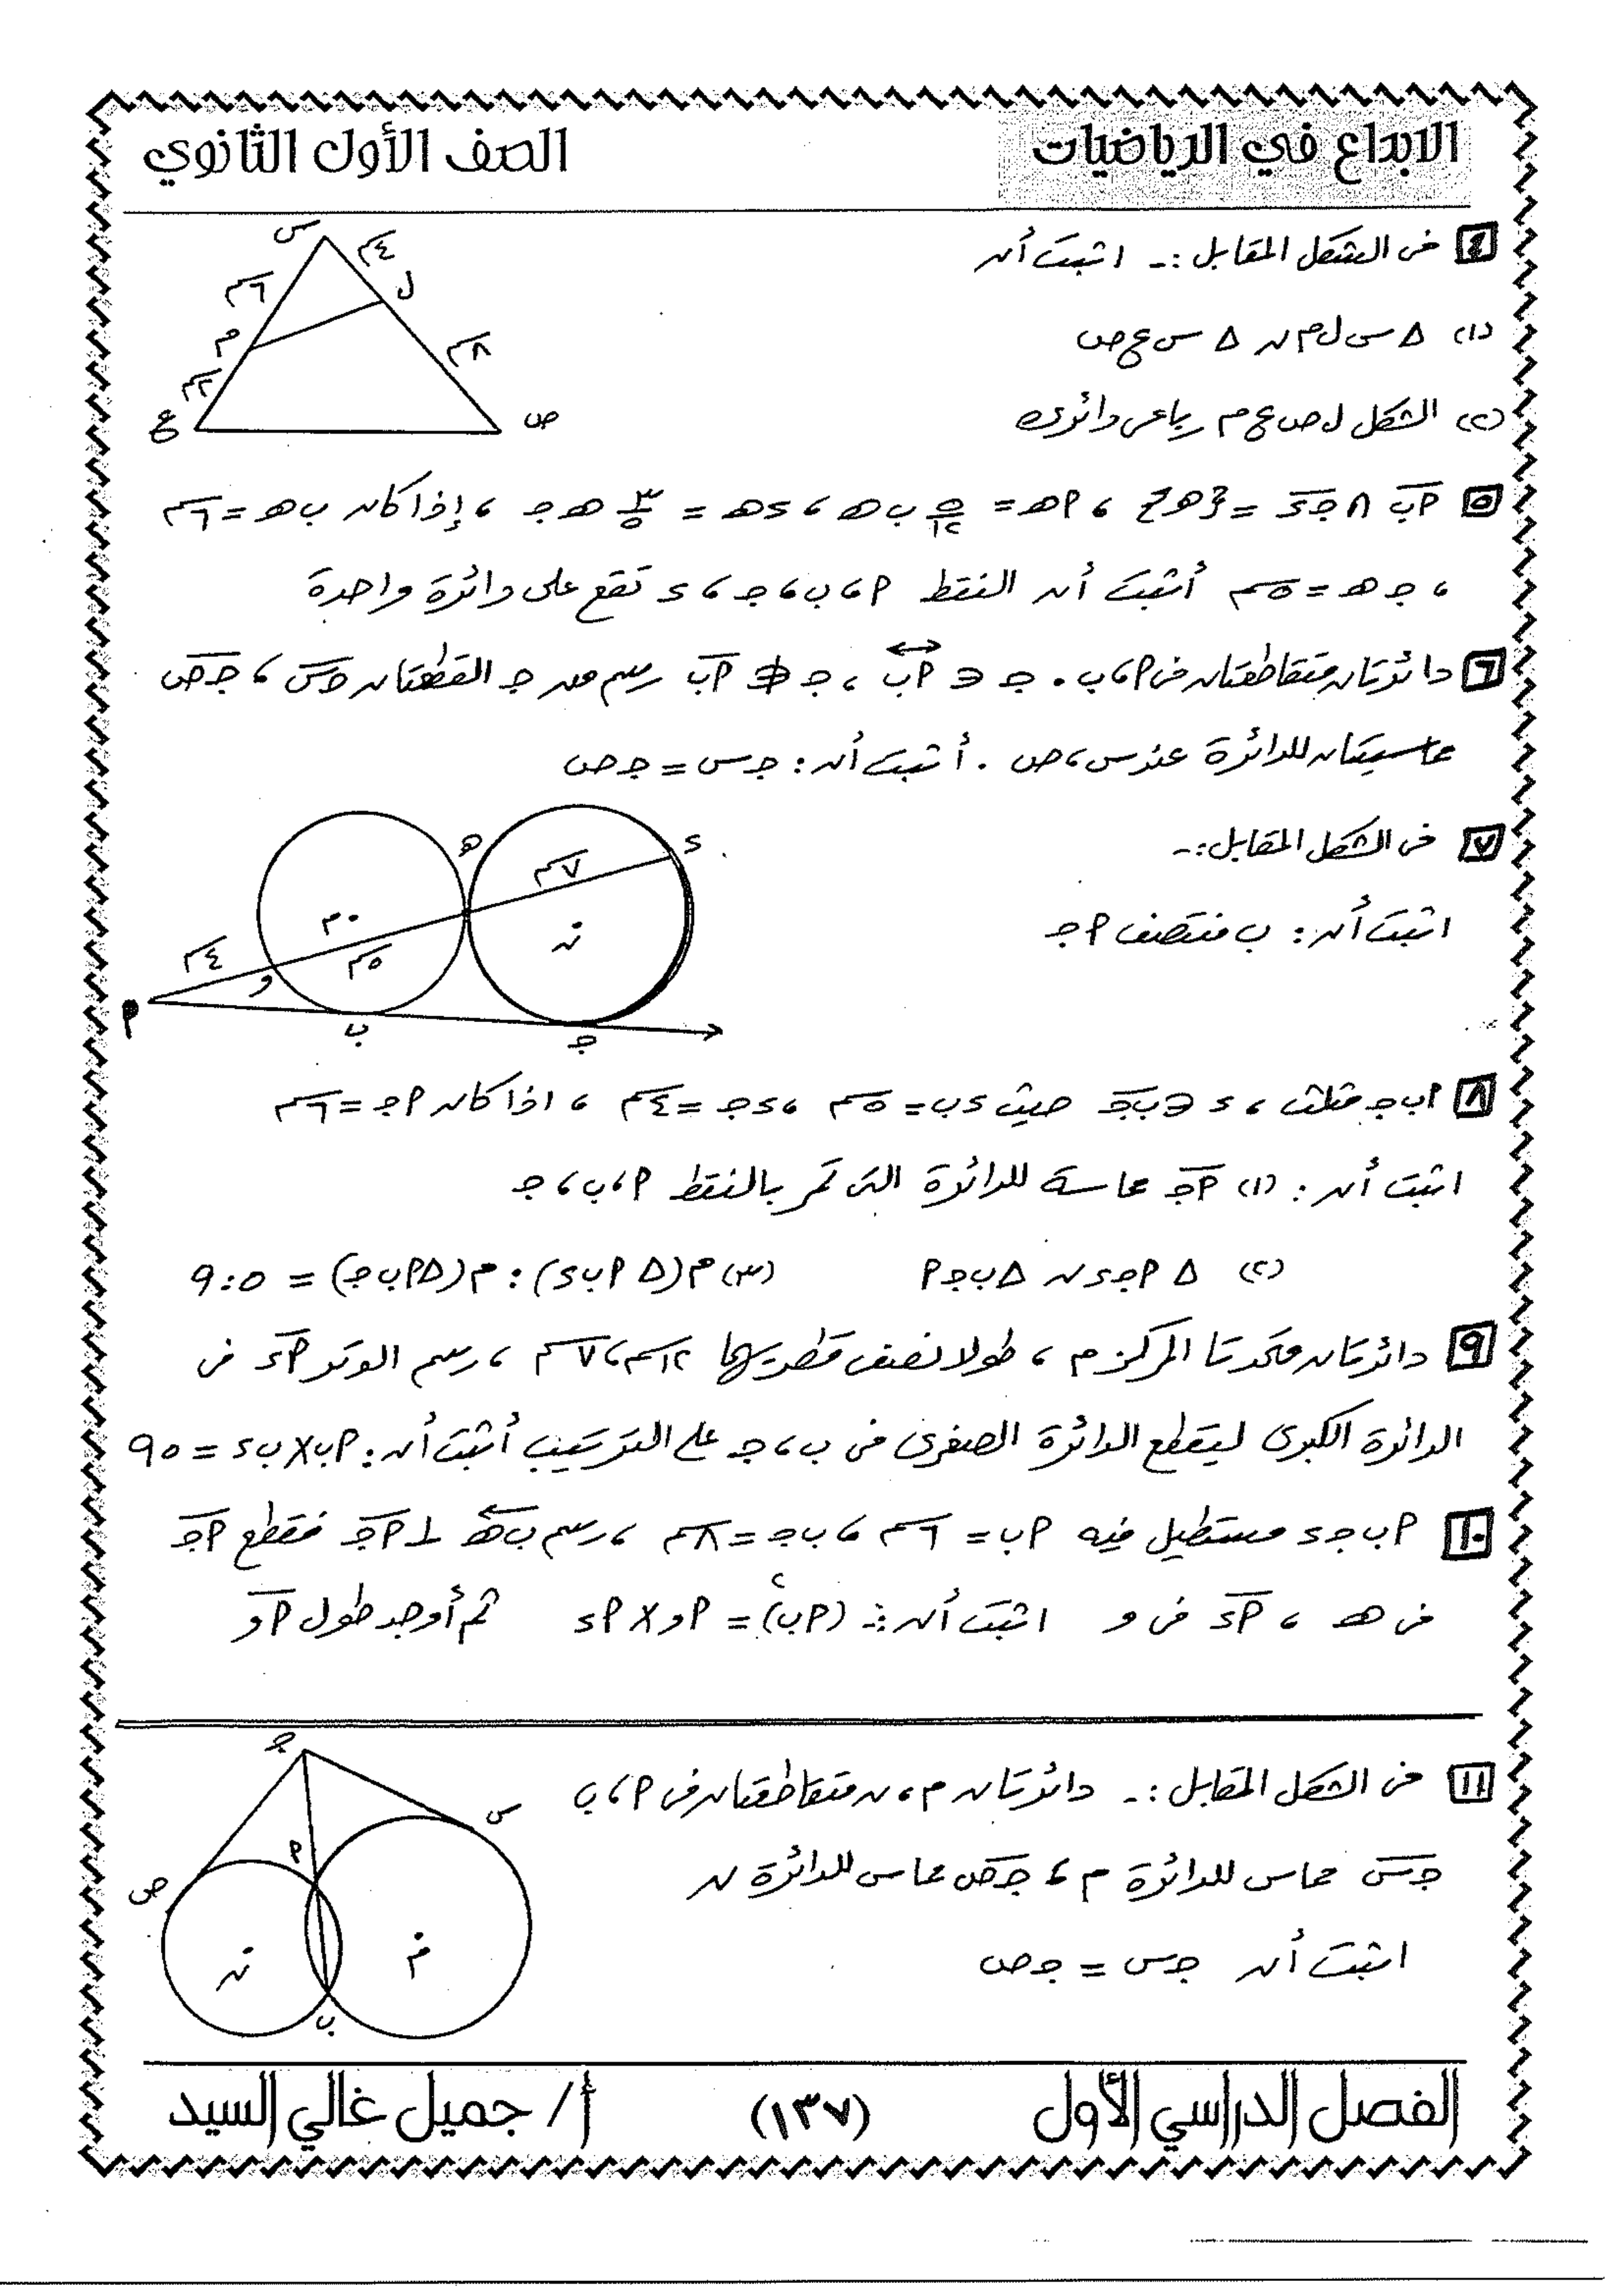 الابداع في الرياضيات
الصف الأول الثانوي
٤ فى الشكل المقابل :- اثبت أن
(١) Δ س ل م ~ Δ س ع ص
(٢) الشكل ل ص ع م رباعى دائرى
س
٤سم
ل
٦سم
م
٨سم
٢سم
ع
ص
٥ أب ∩ جـد = {هـ} ، أهـ = ٥/١٢ ب هـ ، د هـ = ٣/٥ هـ جـ ، إذا كان ب هـ = ٦سم
، جـ هـ = ٥سم أثبت أن النقط أ ، ب ، جـ ، د تقع على دائرة واحدة
٦ دائرتان متقاطعتان فى أ ، ب . جـ ∈ أب ، جـ ∉ أب رسم من جـ القطعتان جـس ، جـص
مماسيتان للدائرة عند س ، ص . أثبت أن : جـ س = جـ ص
٧ فى الشكل المقابل :-
اثبت أن : ب منتصف أ جـ
هـ
د
٧سم
م
ن
٤سم
و
٥سم
أ
ب
جـ
٨ أ ب جـ مثلث ، د ∈ ب جـ حيث د ب = ٥سم ، د جـ = ٤سم ، اذا كان أ جـ = ٦سم
اثبت أن : (١) أ جـ مماسة للدائرة التى تمر بالنقط أ ، ب ، جـ
(٢) Δ أ جـ د ~ Δ ب جـ أ (٣) م (Δ أ ب د) : م (Δ أ ب جـ) = ٥ : ٩
٩ دائرتان متحدتا المركز م ، طولا نصف قطريهما ١٢سم ، ٧سم ، رسم الوتر أد فى
الدائرة الكبرى ليقطع الدائرة الصغرى فى ب ، جـ على الترتيب أثبت أن : أ ب × ب د = ٩٥
١٠ أ ب جـ د مستطيل فيه أ ب = ٦سم ، ب جـ = ٨سم ، رسم ب هـ ⊥ أ جـ فقطع أ جـ
فى هـ ، أد فى و اثبت أن :- (أ ب)² = أ و × أ د ثم أوجد طول أ و
١١ فى الشكل المقابل :- دائرتان م ، ن متقاطعتان فى أ ، ب
جـس مماس للدائرة م ، جـص مماس للدائرة ن
اثبت أن جـ س = جـ ص
جـ
س
أ
ص
ن
م
ب
الفصل الدراسي الأول
(١٣٧)
أ / جميل غالي السيد